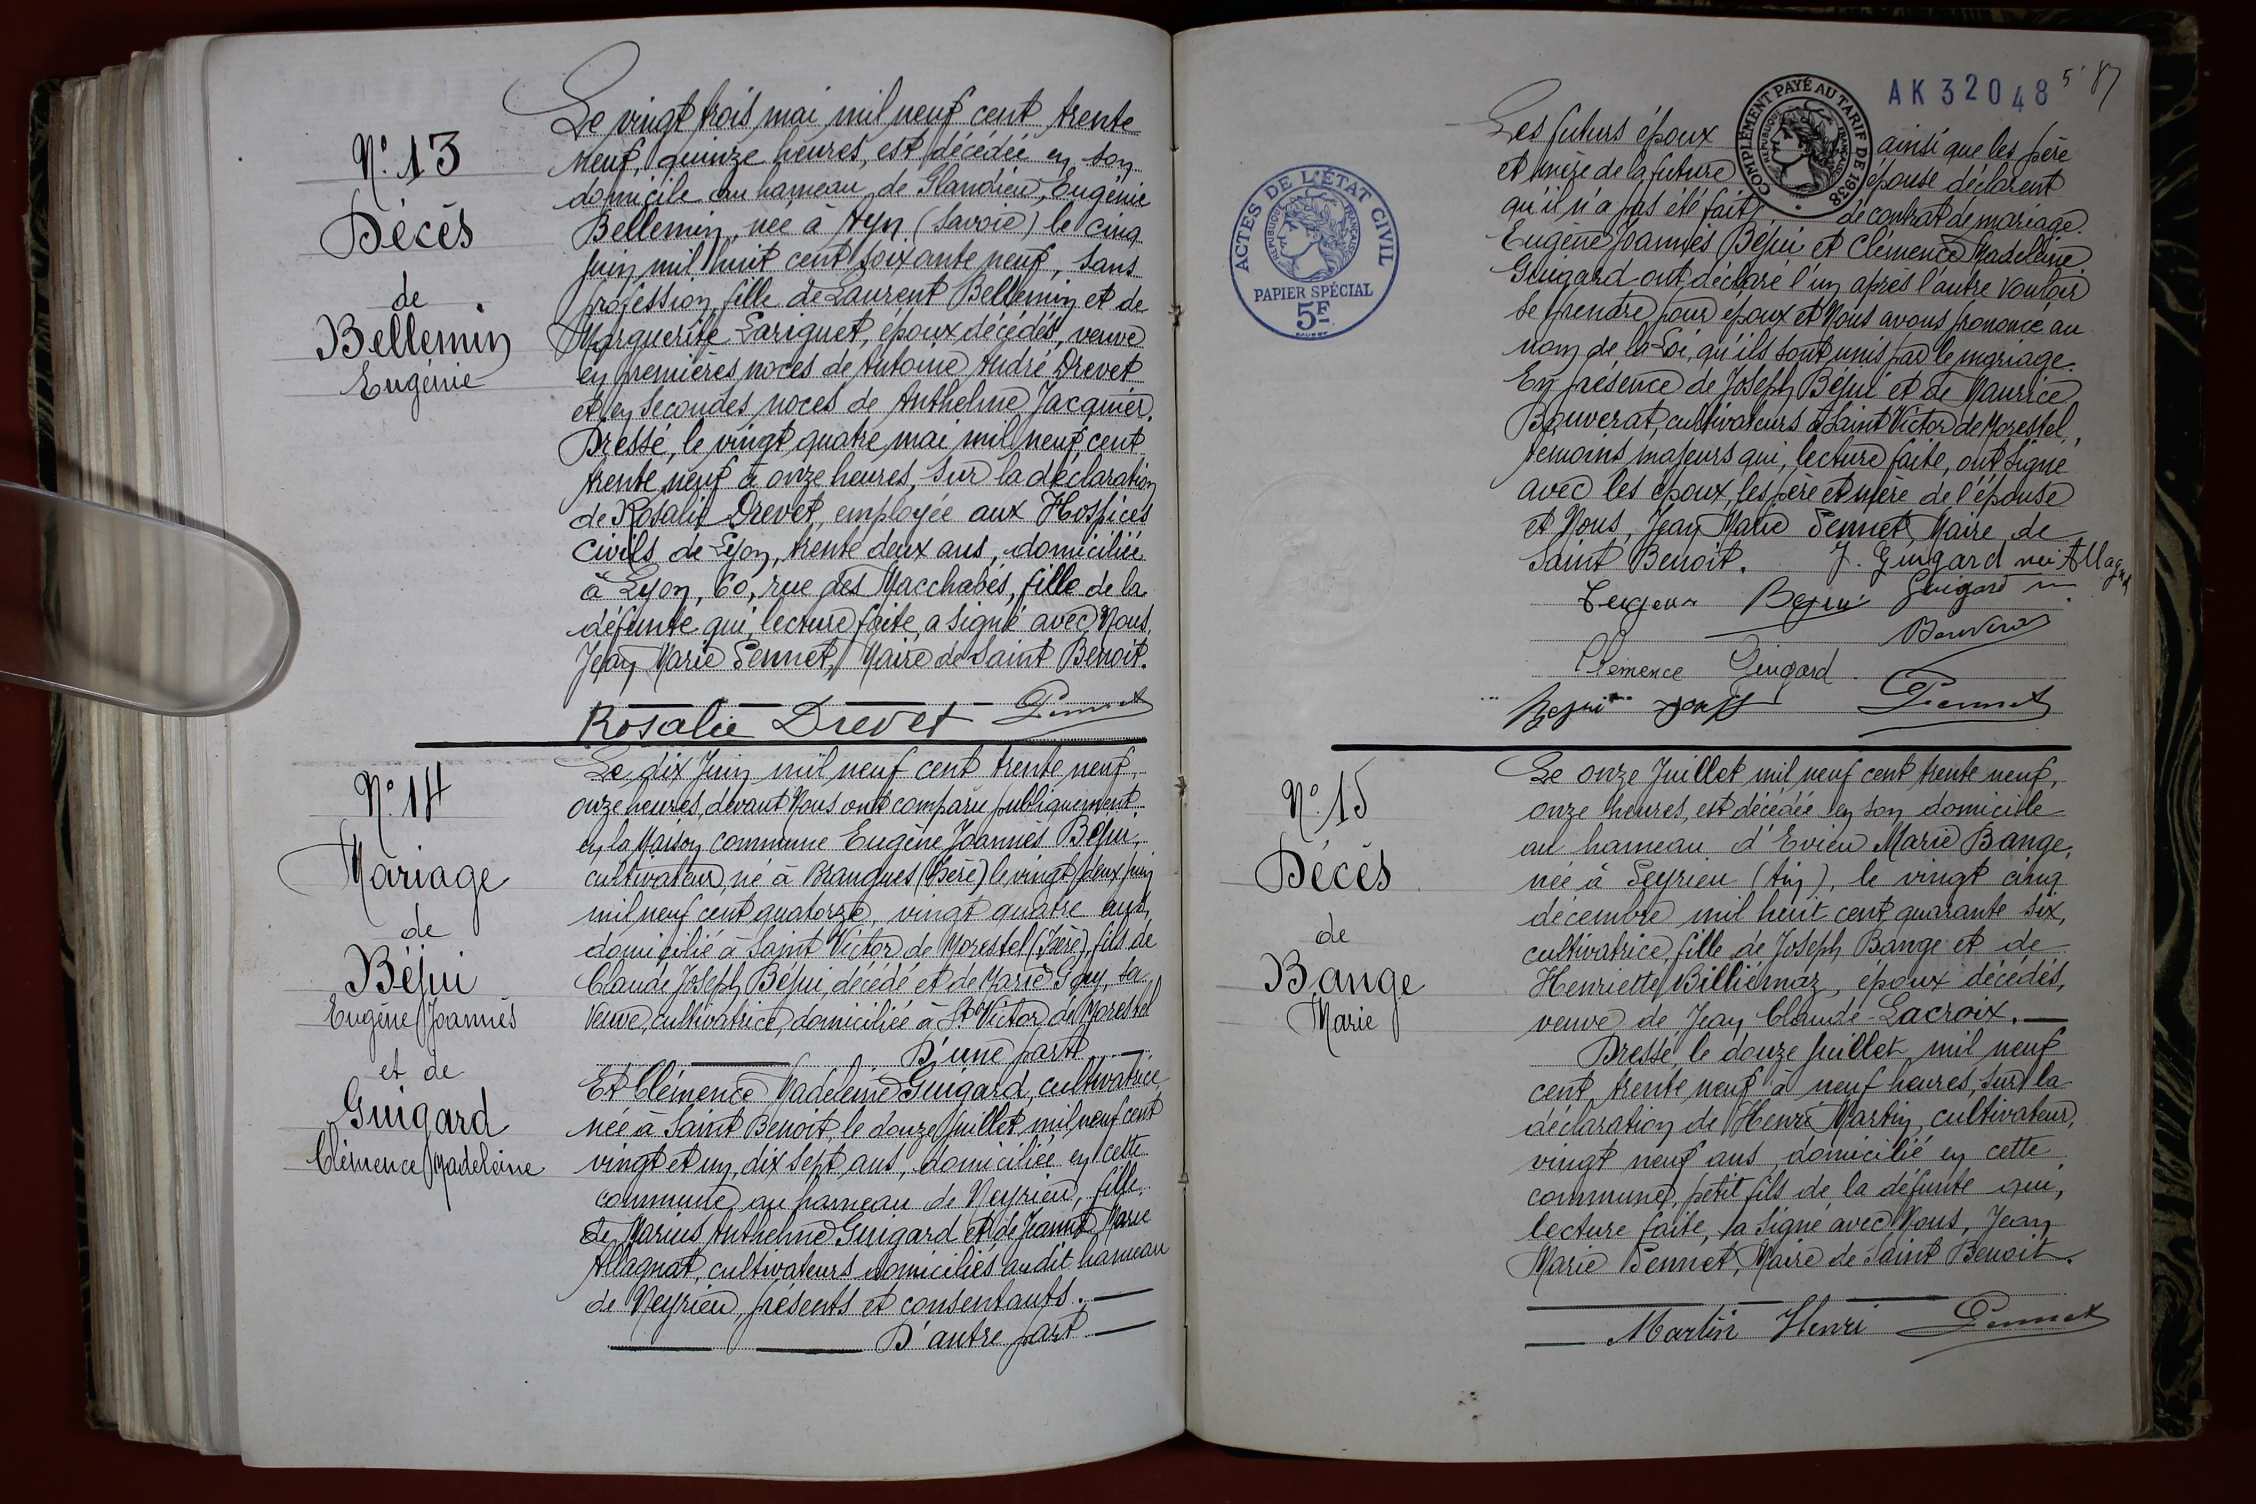 N° 13
Décès
de
Bellemin
Eugénie
Le vingt trois mai mil neuf cent trente
neuf, quinze heures, est décédée en son
domicile au hameau de Glandieu, Eugénie
Bellemin, née à Ayn (Savoie) le cinq
juin mil huit cent soixante neuf, sans
profession, fille de Laurent Bellemin et de
Marguerite Lariguet, époux décédés, veuve
en premières noces de Antoine André Drevet
et en secondes noces de Anthelme Jacquier.
Dressé, le vingt quatre mai mil neuf cent
trente neuf à onze heures, sur la déclaration
de Rosalie Drevet, employée aux Hospices
civils de Lyon, trente deux ans, domiciliée
à Lyon, 60, rue des Macchabés, fille de la
défunte qui, lecture faite, a signé avec Nous,
Jean Marie Pennet, Maire de Saint Benoit.
Rosalie Drevet Pennet
N° 14
Mariage
de
Béjui
Eugène Joannès
et de
Guigard
Clémence Madeleine
Le dix Juin mil neuf cent trente neuf,
onze heures, devant Nous ont comparu publiquement
en la Maison commune Eugène Joannès Béjui,
cultivateur, né à Brangues (Isère) le vingt deux juin
mil neuf cent quatorze, vingt quatre ans,
domicilié à Saint Victor de Morestel (Isère), fils de
Claude Joseph Béjui, décédé et de Marie Guy, sa
veuve, cultivatrice, domiciliée à St Victor de Morestel
D'une part
Et Clémence Madeleine Guigard, cultivatrice,
née à Saint Benoit, le douze juillet mil neuf cent
vingt et un, dix sept ans, domiciliée en cette
commune au hameau de Neyrieu, fille
de Marius Anthelme Guigard et de Jeanne Marie
Allagnat, cultivateurs domiciliés audit hameau
de Neyrieu, présents et consentants.
D'autre part
AK 32048
5 87
COMPLÉMENT PAYÉ AU TARIF DE 1938
RÉPUBLIQUE FRANÇAISE
ACTES DE L'ÉTAT CIVIL
RÉPUBLIQUE FRANÇAISE
PAPIER SPÉCIAL
5F
Les futurs époux ainsi que les père
et mère de la future épouse déclarent
qu'il n'a pas été fait de contrat de mariage.
Eugène Joannès Béjui et Clémence Madeleine
Guigard ont déclaré l'un après l'autre vouloir
se prendre pour époux et Nous avons prononcé au
nom de la Loi, qu'ils sont unis par le mariage.
En présence de Joseph Béjui et de Maurice
Bouverat, cultivateurs à Saint Victor de Morestel,
témoins majeurs qui, lecture faite, ont signé
avec les époux, les père et mère de l'épouse
et Nous, Jean Marie Pennet, Maire de
Saint Benoit. J. Guigard née Allagnat
Eugène Bejui Guigard m.
Bouverat
Clémence Guigard
Bejui Pennet
N° 15
Décès
de
Bange
Marie
Le onze Juillet mil neuf cent trente neuf,
onze heures, est décédée en son domicile
au hameau d'Evieu Marie Bange,
née à Peyrieu (Ain), le vingt cinq
décembre mil huit cent quarante six,
cultivatrice, fille de Joseph Bange et de
Henriette Billiémaz, époux décédés,
veuve de Jean Claude Lacroix.
Dressé, le douze juillet mil neuf
cent trente neuf à neuf heures, sur la
déclaration de Henri Martin, cultivateur,
vingt neuf ans, domicilié en cette
commune, petit fils de la défunte qui,
lecture faite, a signé avec Nous, Jean
Marie Pennet, Maire de Saint Benoit.
Martin Henri Pennet